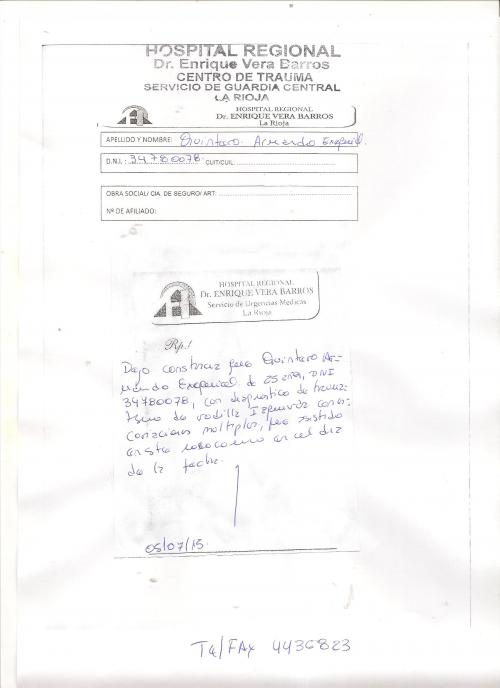 HOSPITAL REGIONAL
Dr. Enrique Vera Barros
CENTRO DE TRAUMA
SERVICIO DE GUARDIA CENTRAL
LA RIOJA
HOSPITAL REGIONAL
Dr. ENRIQUE VERA BARROS
La Rioja
APELLIDO Y NOMBRE: Quintero Armando Exequiel.
D.N.I.: 34780078 CUIT/CUIL:
OBRA SOCIAL/ CIA. DE SEGURO/ ART:
Nº DE AFILIADO:
HOSPITAL REGIONAL
Dr. ENRIQUE VERA BARROS
Servicio de Urgencias Médicas
La Rioja
Rp./
Dejo constancia que Quintero Ar-
mando Exequiel de 25 años, DNI
34780078, con diagnostico de trauma-
tismo de rodilla Izquierda con es-
coriaciones multiples, fue asistido
en este nosocomio en el día
de la fecha.
05/07/15
Te/FAX 4436823